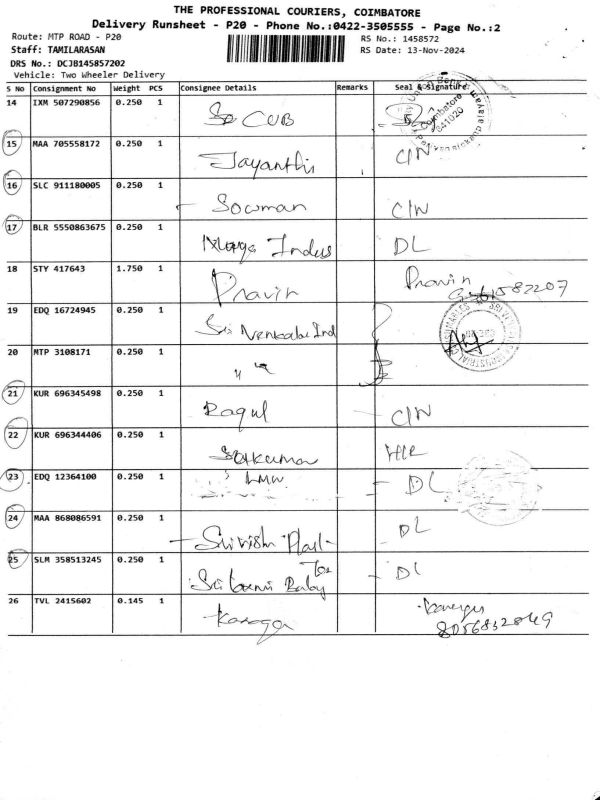 THE PROFESSIONAL COURIERS, COIMBATORE
Delivery Runsheet - P20 - Phone No.:0422-3505555 - Page No.:2
Route: MTP ROAD - P20
RS No.: 1458572
Staff: TAMILARASAN
RS Date: 13-Nov-2024
DRS No.: DCJB145857202
Vehicle: Two Wheeler Delivery
S No Consignment No Weight PCS Consignee Details Remarks Seal & Signature
14 IXM 507290856 0.250 1 CUB
Coimbatore
641020
15 MAA 705558172 0.250 1 Jayanthi C/N
16 SLC 911180005 0.250 1 Sowman C/N
17 BLR 5550863675 0.250 1 Indus DL
18 STY 417643 1.750 1 Pravin Pravin
19 EDQ 16724945 0.250 1 Sri Venkatai Ind
20 MTP 3108171 0.250 1 "
21 KUR 696345498 0.250 1 Ragul C/N
22 KUR 696344406 0.250 1
23 EDQ 12364100 0.250 1 LMW DL
24 MAA 868086591 0.250 1 DL
25 SLM 358513245 0.250 1 Sri DL
26 TVL 2415602 0.145 1
8056832849